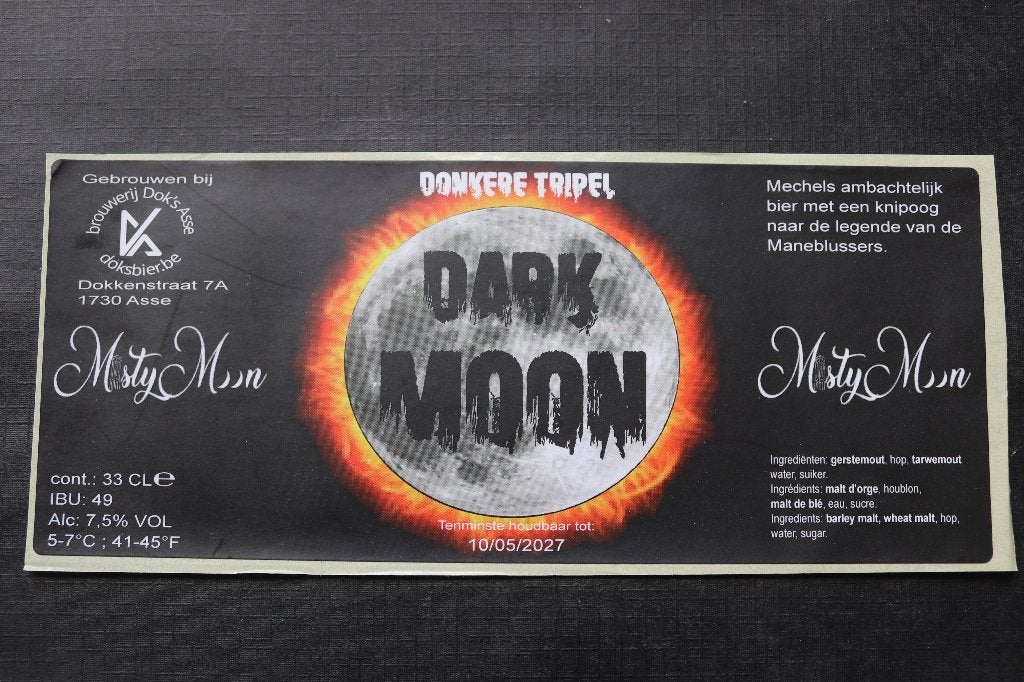 Gebrouwen bij
brouwerij Dok's Asse
doksbier.be
Dokkenstraat 7A
1730 Asse
Misty Moon
cont.: 33 CL℮
IBU: 49
Alc: 7,5% VOL
5-7°C ; 41-45°F
DONKERE TRIPEL
DARK
MOON
Tenminste houdbaar tot:
10/05/2027
Mechels ambachtelijk
bier met een knipoog
naar de legende van de
Maneblussers.
Misty Moon
Ingrediënten: gerstemout, hop, tarwemout
water, suiker.
Ingrédients: malt d'orge, houblon,
malt de blé, eau, sucre.
Ingredients: barley malt, wheat malt, hop,
water, sugar.